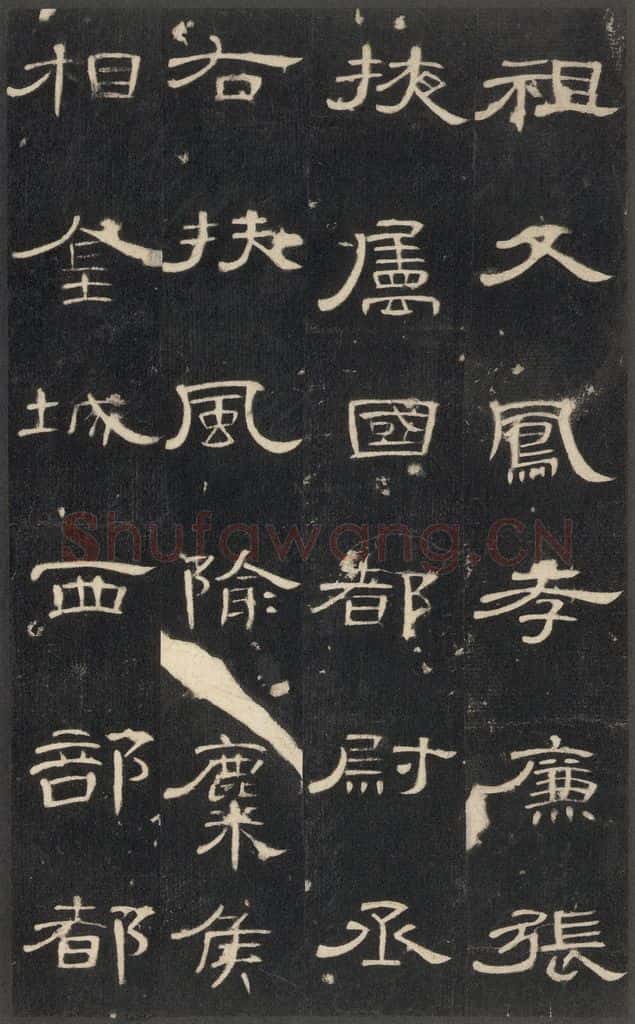 祖父鳳孝廉張
掖屬國都尉丞
右扶風隃麋侯
相金城西部都
Shufawang.CN